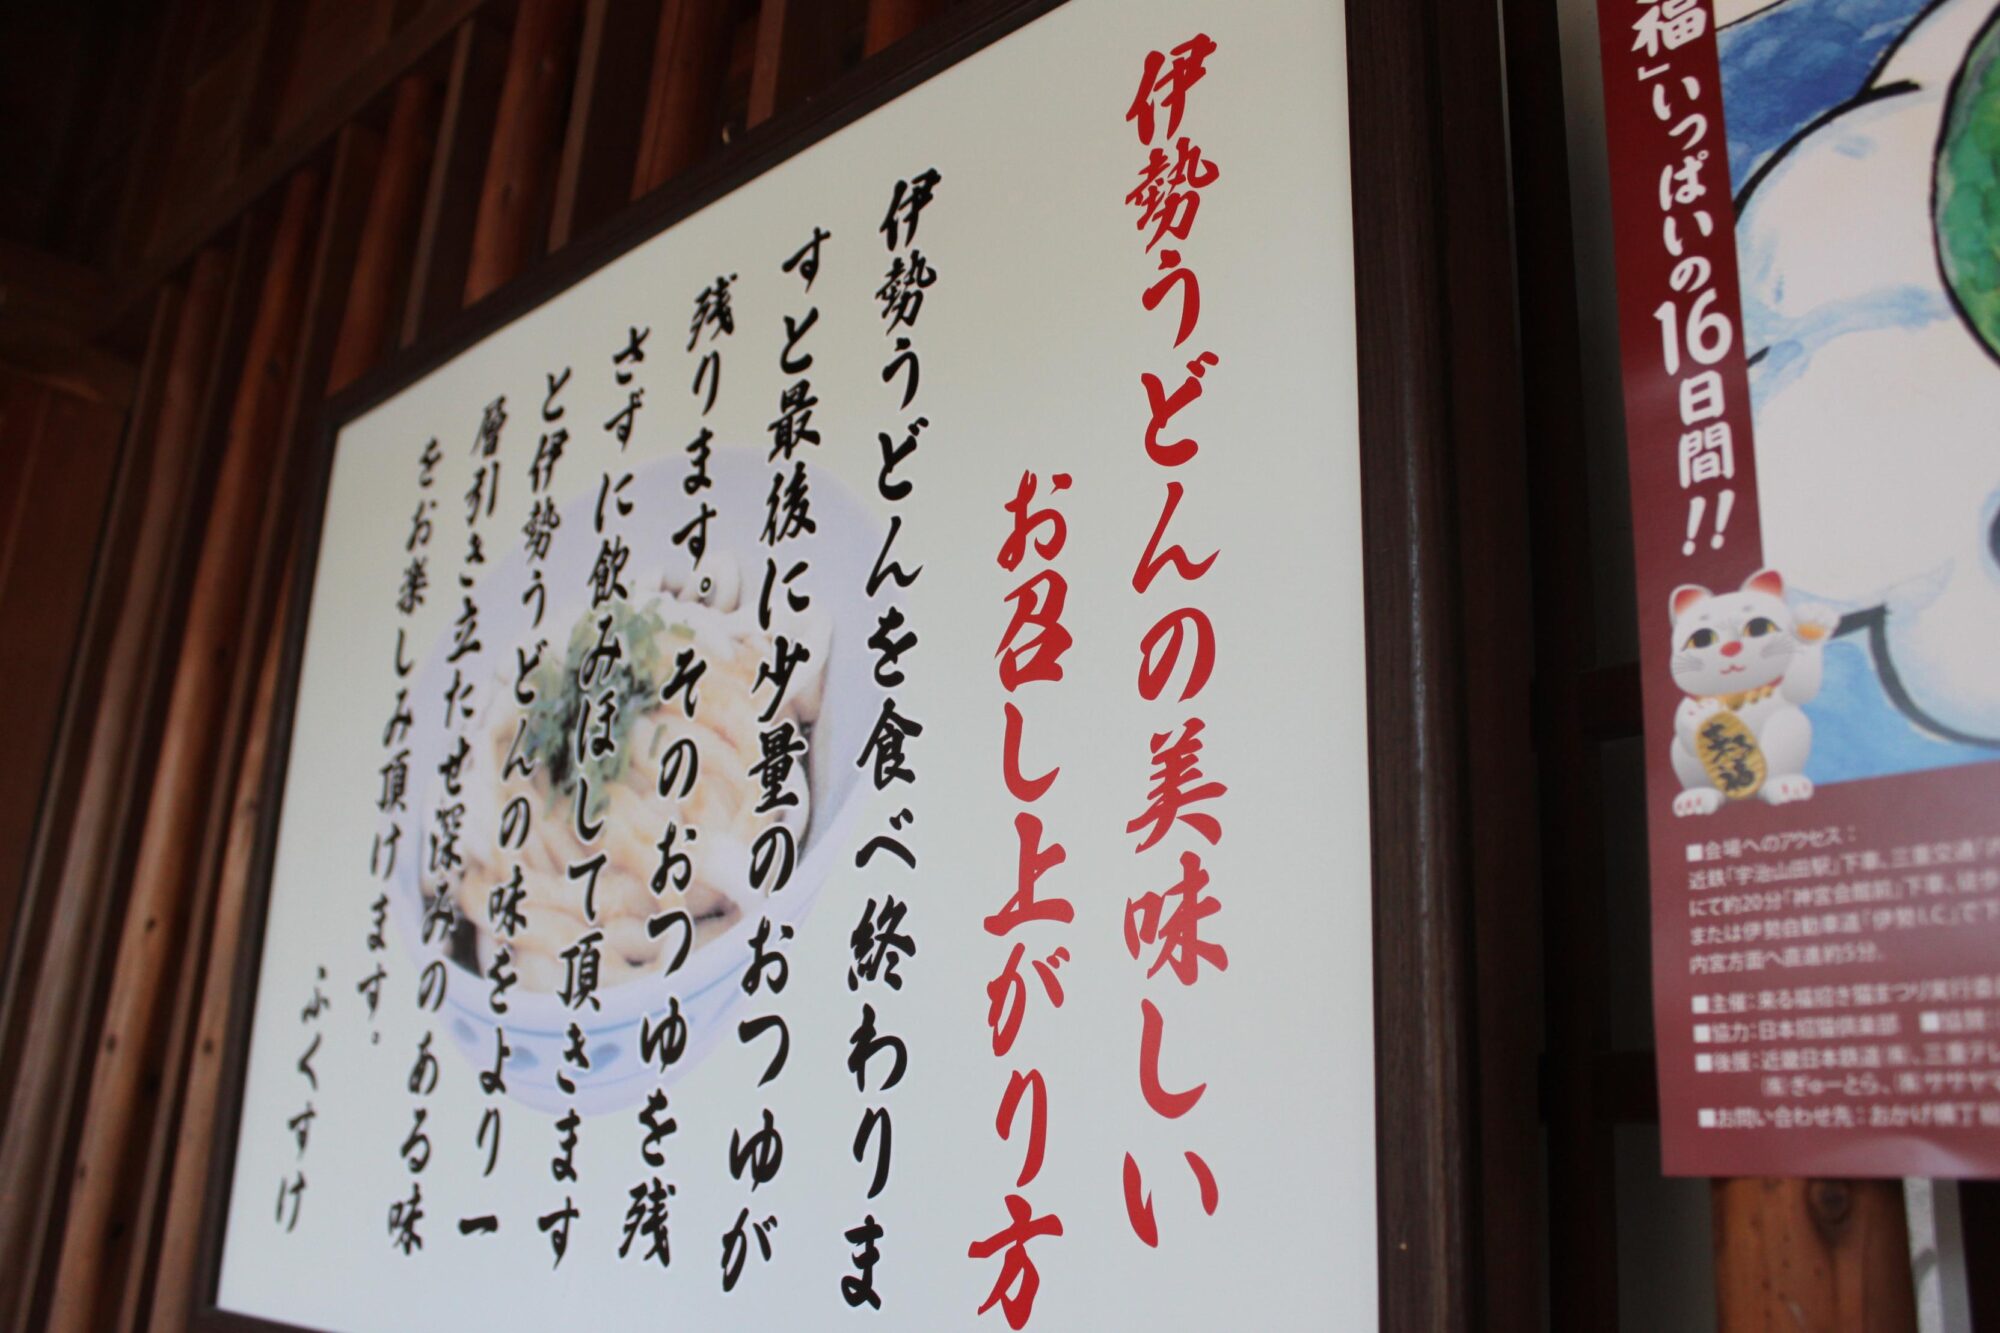 伊勢うどんの美味しい
お召し上がり方
伊勢うどんを食べ終わりま
すと最後に少量のおつゆが
残ります。そのおつゆを残
さずに飲みほして頂きます
と伊勢うどんの味をより一
層引き立たせ深みのある味
をお楽しみ頂けます。
ふくすけ
福」いっぱいの16日間!!
■会場へのアクセス：
近鉄「宇治山田駅」下車、三重交通
にて約20分「神宮会館前」下車、徒歩
または伊勢自動車道「伊勢I.C.」で下
内宮方面へ直進約5分。
■主催：来る福招き猫まつり実行委員
■協力：日本招猫倶楽部 ■協賛：
■後援：近畿日本鉄道㈱、三重テレ
㈱ぎゅーとら、㈱ササヤマ
■お問い合わせ先：おかげ横丁総